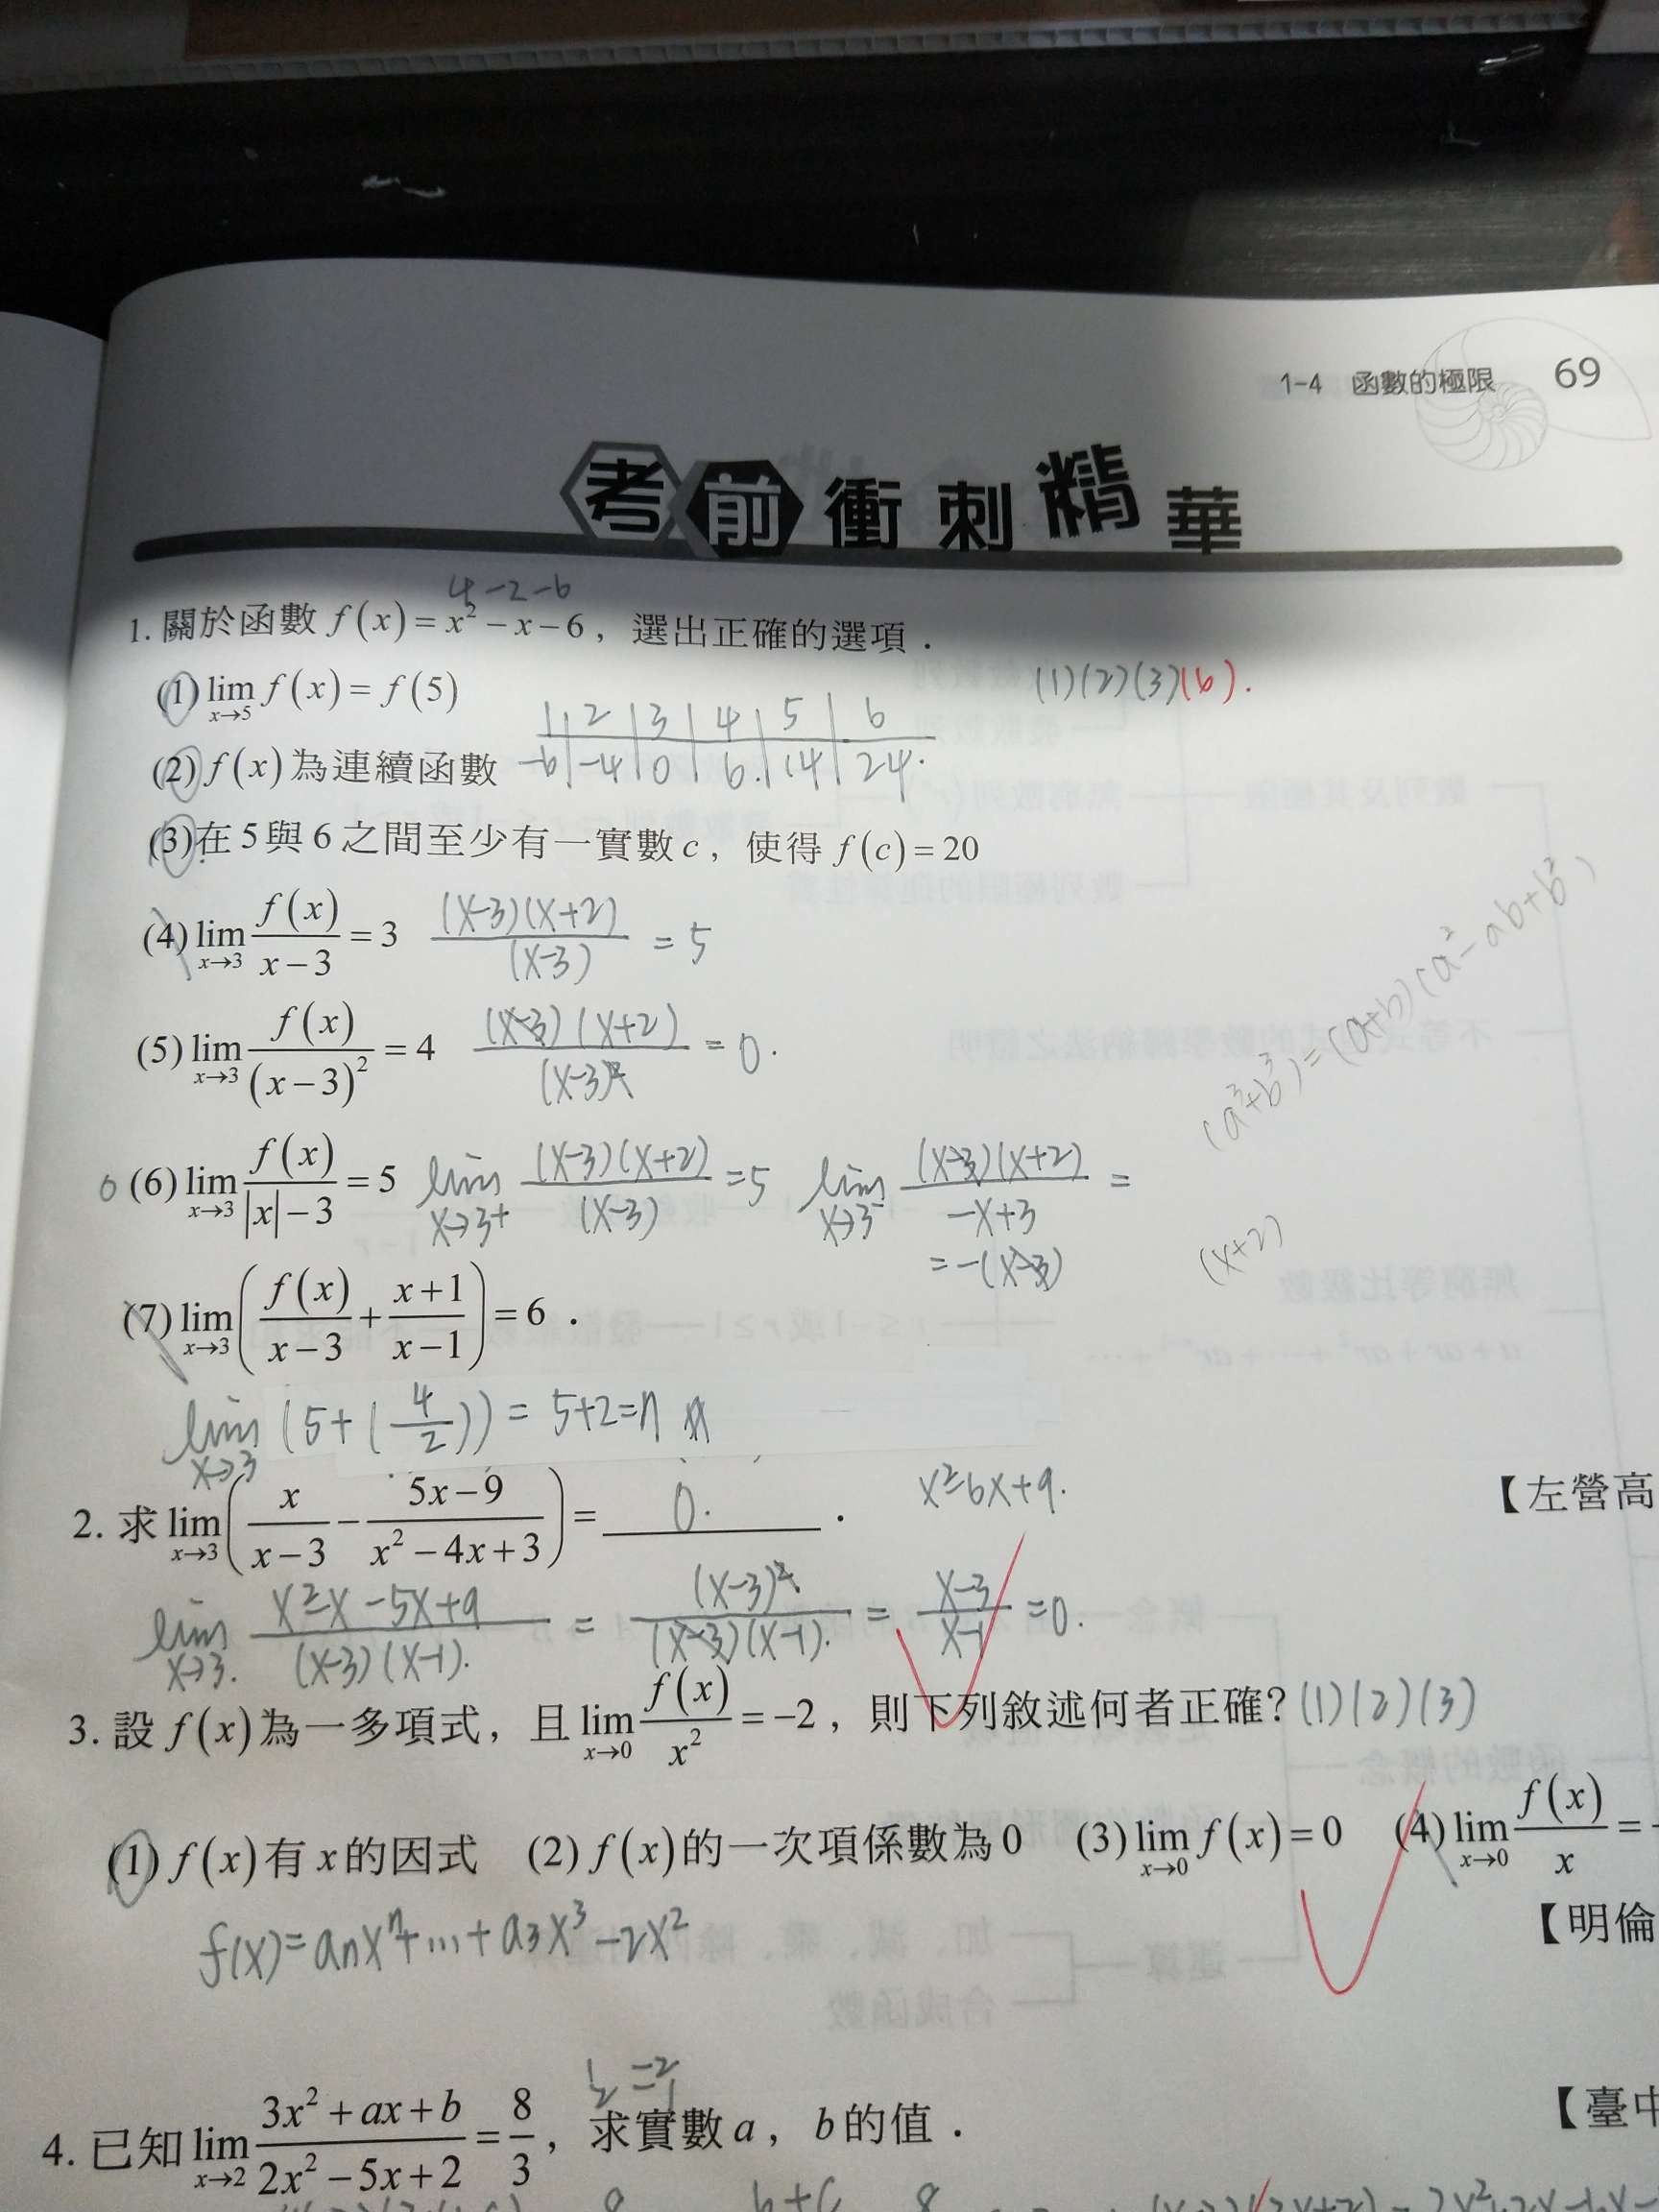 1-4 函數的極限 69
考前衝刺精華
4-2-6
1. 關於函數 f(x) = x² - x - 6，選出正確的選項．
(1)(2)(3)(6).
(1) lim_{x→5} f(x) = f(5)
1 | 2 | 3 | 4 | 5 | 6
(2) f(x) 為連續函數
-6 | -4 | 0 | 6. | 14 | 24.
(3) 在 5 與 6 之間至少有一實數 c，使得 f(c) = 20
(4) lim_{x→3} f(x)/(x-3) = 3 (x-3)(x+2)/(x-3) = 5
(a³+b³)=(a+b)(a²-ab+b²)
(5) lim_{x→3} f(x)/(x-3)² = 4 (x-3)(x+2)/(x-3)² = 0.
0 (6) lim_{x→3} f(x)/(|x|-3) = 5 lim_{x→3⁺} (x-3)(x+2)/(x-3) = 5 lim_{x→3⁻} (x-3)(x+2)/(-x+3) =
= -(x-3)
(x+2)
(7) lim_{x→3} ( f(x)/(x-3) + (x+1)/(x-1) ) = 6．
lim_{x→3} (5+(4/2)) = 5+2=7
x²-6x+9.
【左營高
2. 求 lim_{x→3} ( x/(x-3) - (5x-9)/(x²-4x+3) ) = 0.．
lim_{x→3.} (x²-x-5x+9)/((x-3)(x-1).) = (x-3)²/((x-3)(x-1).) = (x-3)/(x-1) = 0.
3. 設 f(x) 為一多項式，且 lim_{x→0} f(x)/x² = -2，則下列敘述何者正確? (1)(2)(3)
(1) f(x) 有 x 的因式 (2) f(x) 的一次項係數為 0 (3) lim_{x→0} f(x) = 0 (4) lim_{x→0} f(x)/x = -
【明倫
f(x)=anxⁿ+…+a3x³-2x²
【臺中
4. 已知 lim_{x→2} (3x²+ax+b)/(2x²-5x+2) = 8/3，求實數 a，b 的值．